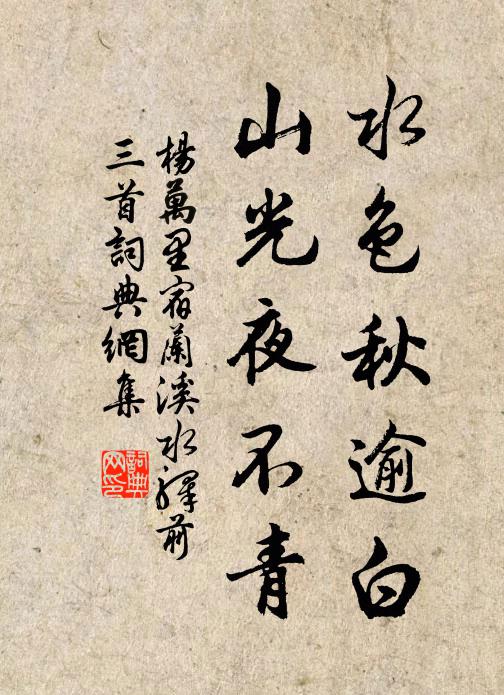 水色秋逾白
山光夜不青
楊萬里宿蘭溪水驛前
三首詞典網集
詞典
网印